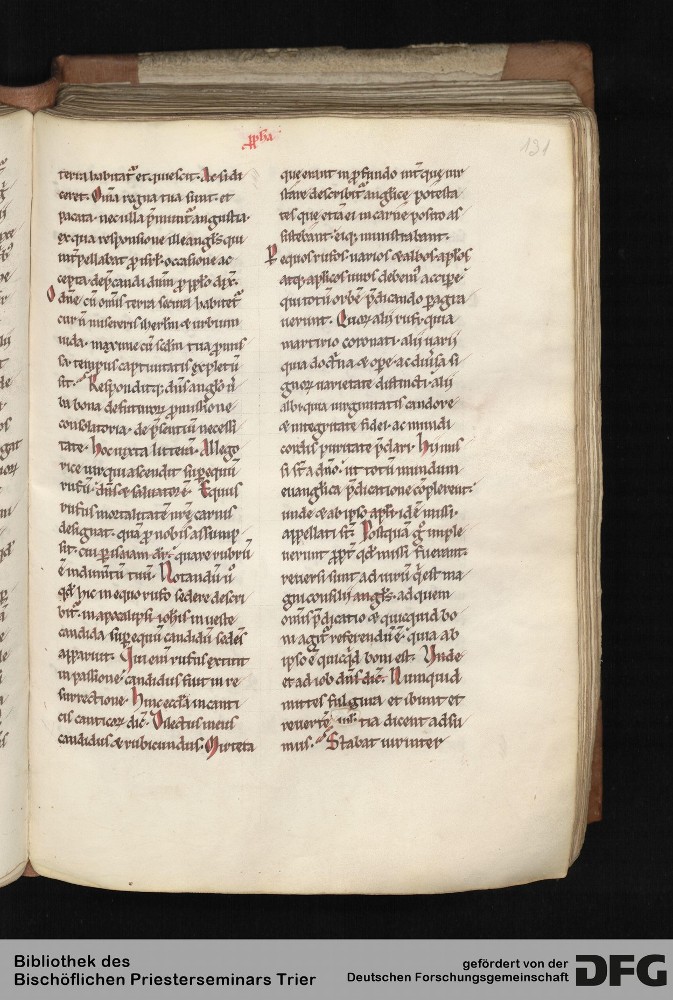 ꝓph̄a
131
terra habitat᷑ et quiescit. Ac si di
ceret. Om̄ia regna tua sunt. et
pacata. nec ulla p̄munit᷑ angustia.
ex qua responsione ille angl̄s qui
int̄pellabat ꝓ isrl̄. occasione ac
cepta. dep̄candi dn̄m ꝓ pplo dix̄.
O dn̄e cū omīs terra secura habitet᷑
cur ñ misereris ihrlm̄ & urbium
iuda. maxime cū scdm̄ tua ꝓmis
sa. tempus captiuitatis expletū
sit. Responditq; dn̄s anglo ū
ba bona de futuroꝝ ꝓmissione
consolatoria. de p̄sentiū necessi
tate. hoc iuxta litterā. Allego
rice uir qui ascendit suꝑ equū
rufū. dn̄s & saluator ē. Equus
rufus mortalitatē nr̄e carnis
designat. quā ꝓ nobis assūmp
sit. cui ꝑ isaiam dr̄. quare rubrū
ē indumtū tuū. Notandū ū
qd̄ hic in equo rufo sedere descri
bit᷑. in apocalipsi iohis in ueste
candida suꝑ equū candidū sedēs
apparuit. Qui eni rufus extitit
in passione. candidus fuit in re
surrectione. hinc eccl̄a in canti
cis canticoꝝ dic̄. Dilectus meus
candidus & rubicundus. Mirteta
que erant in ꝓfundo int̄ que uir
stare describit᷑ anglice potesta
tes que etiā ei in carne posito as
sistebant. eiq; ministrabant.
P equos rufos. uarios & albos. aplos
atq; aplicos uiros debem᷒ accipe
qui totū orbē p̄dicando ꝑagra
uerunt. Quoꝝ alij rufi. quia
martirio coronati. alij uarij
quia doct̄na & ope. ac diuīsa si
gnoꝝ uarietate distincti. alij
albi. quia uirginitatis candore
& integritate fidei. ac mundi
cordis puritate p̄clari. hij mis
si st̄ a dn̄o. ut totū mundum
euanglica p̄dicatione cōplerent.
unde & ab ipso apl̄i. idē missi.
appellati st̄. Postquā g̊ imple
uerunt ꝓpt̄ qd̄ missi fuerant.
reuersi sunt ad uirū q̄ est ma
gni consilij angl̄s. ad quem
omīs p̄dicatio & quicquid bo
ni agit᷑ referendū ē. quia ab
ipso ē quicq̄d boni est. Unde
et ad iob dn̄s dic̄. Nunquid
mittes fulgura et ibunt et
reuertētia dicent adsu
mus. Stabat uir inter
Bibliothek des
Bischöflichen Priesterseminars Trier
gefördert von der
Deutschen Forschungsgemeinschaft
DFG